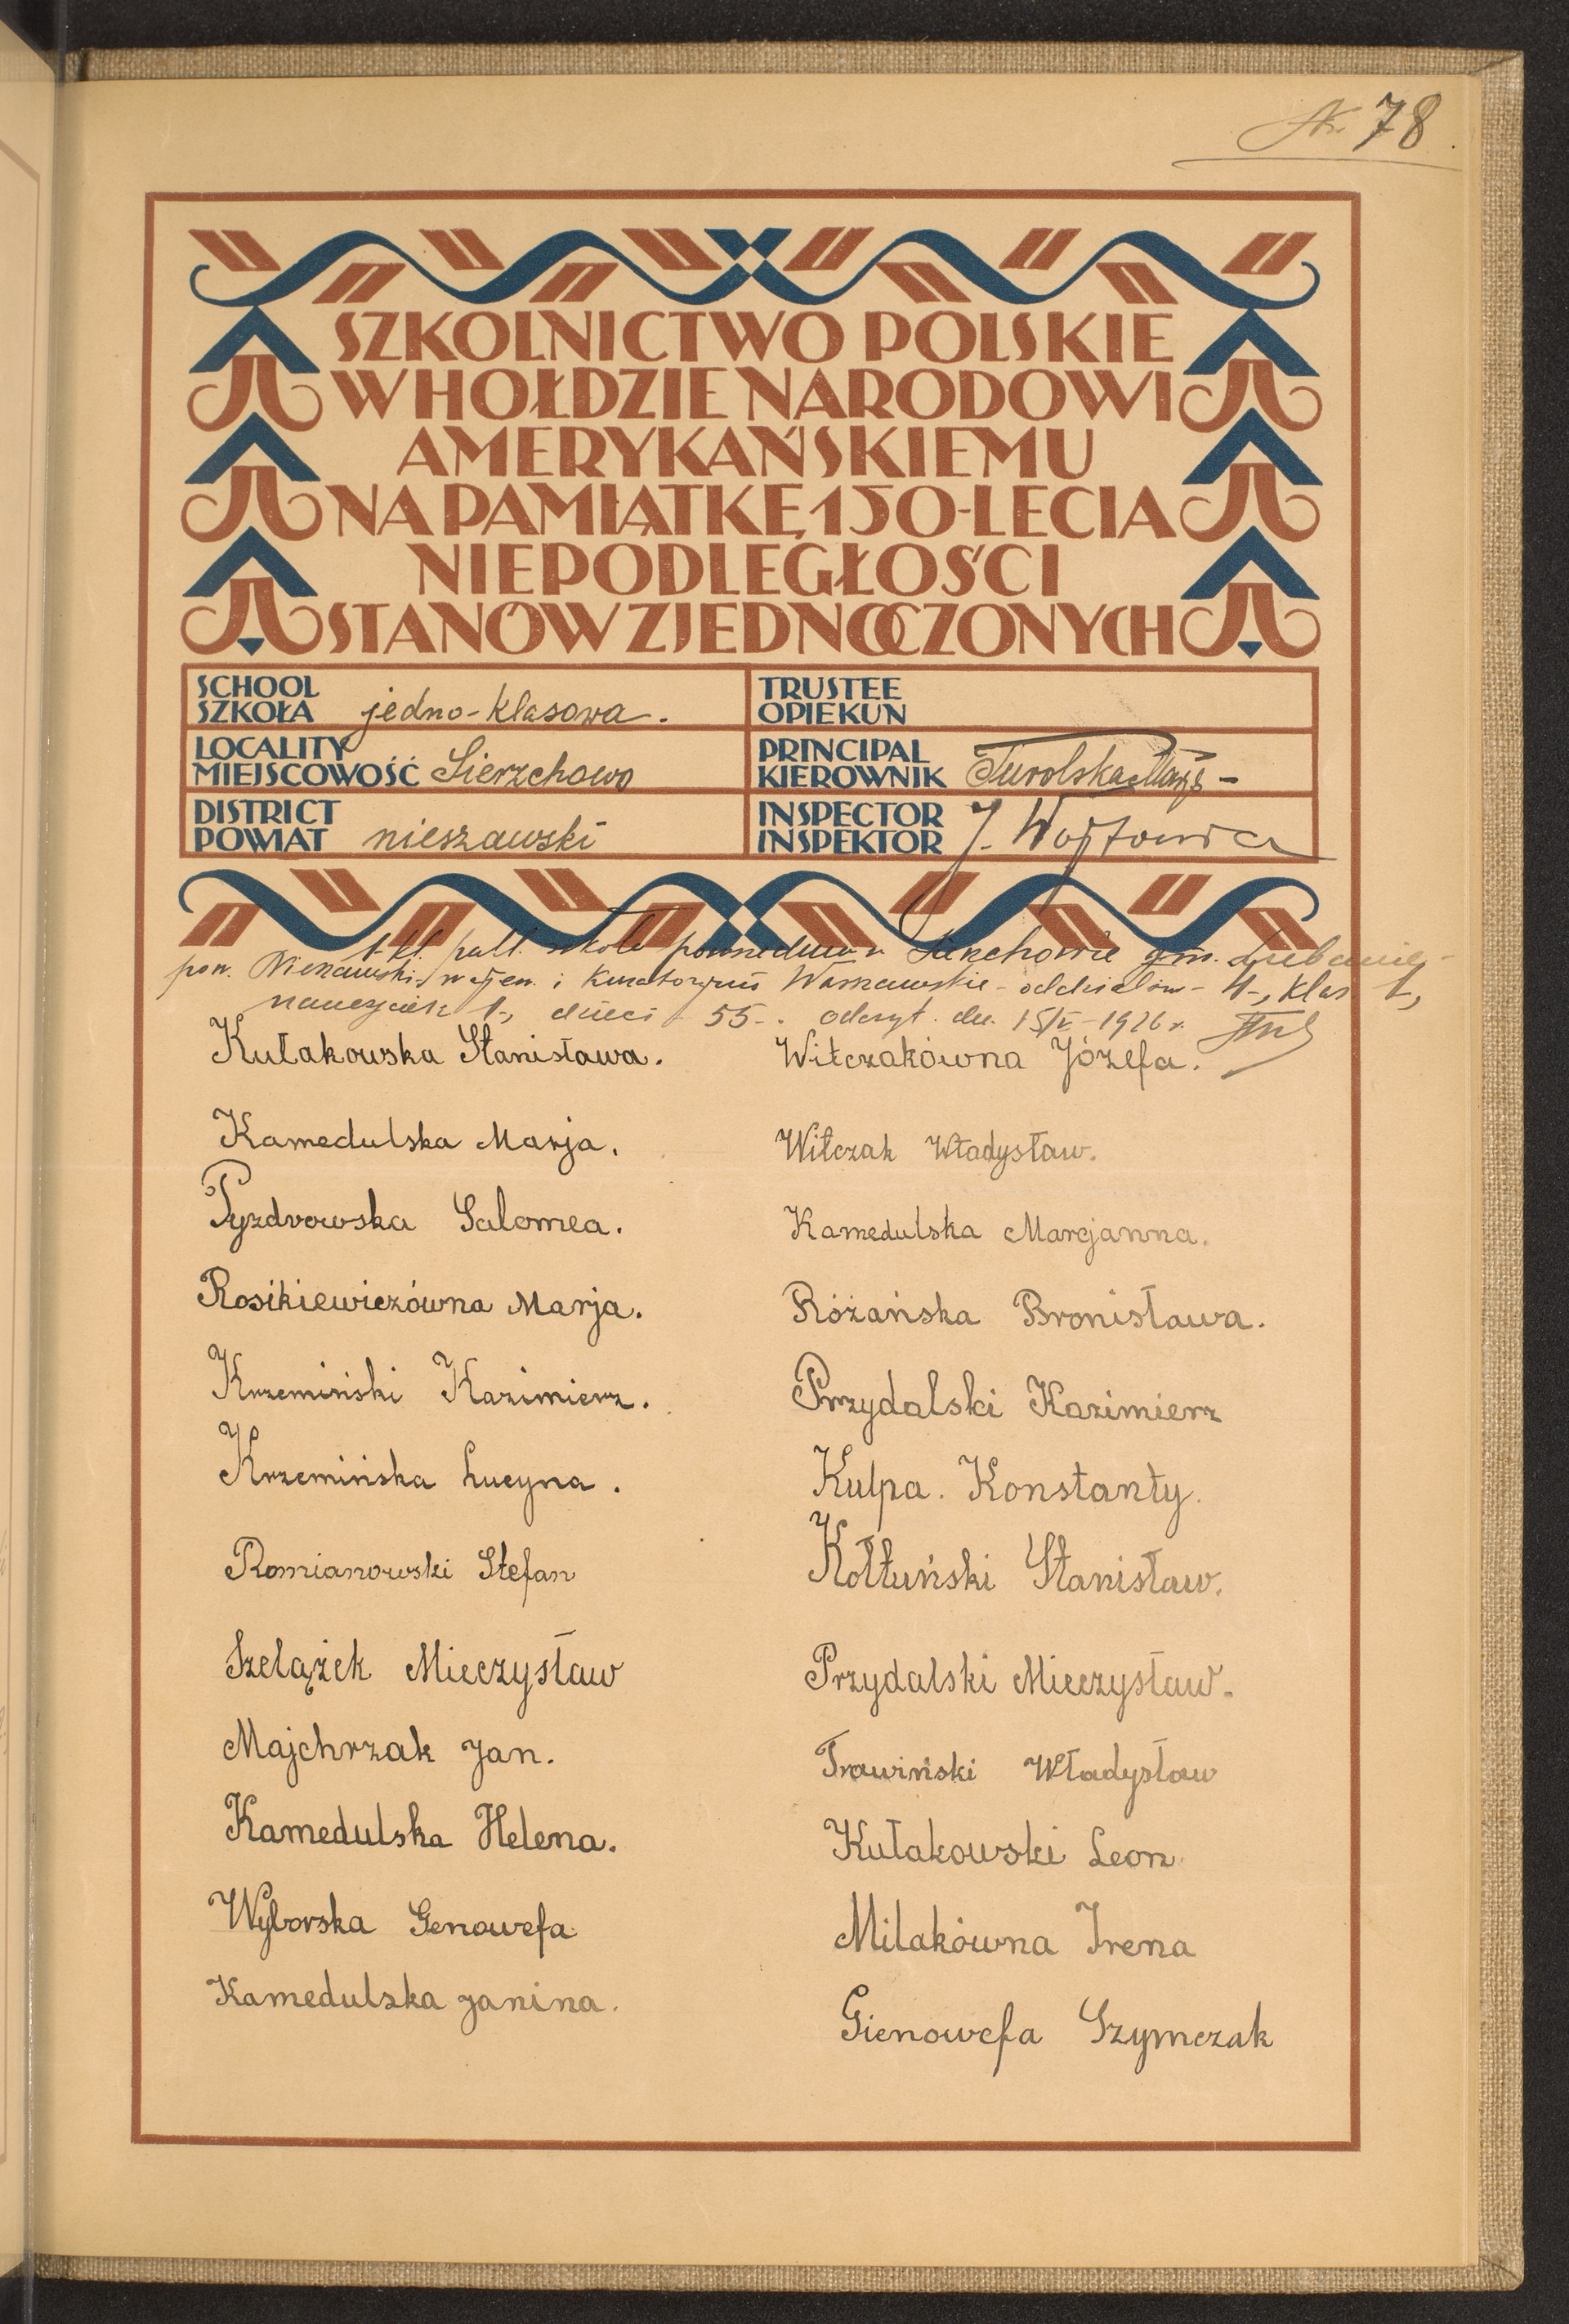 № 78
SZKOLNICTWO POLSKIE
W HOŁDZIE NARODOWI
AMERYKAŃSKIEMU
NA PAMIĄTKĘ 150-LECIA
NIEPODLEGŁOŚCI
STANÓW ZJEDNOCZONYCH
SCHOOL
SZKOŁA jedno-klasowa.
TRUSTEE
OPIEKUN
LOCALITY
MIEJSCOWOŚĆ Sierzchowo
PRINCIPAL
KIEROWNIK Turolska
DISTRICT
POWIAT nieszawski
INSPECTOR
INSPEKTOR J. Wojtowicz
1-kl. publ. szkoła powszechna w Sierzchowie gm. Lubanie,
pow. Nieszawski, i Kuratorjum Warszawskie - oddziałów - 4-, klas 1,
nauczyciele 1-, dzieci - 55-. dn. 15/V-1926 r.
Kułakowska Stanisława.
Kamedulska Marja.
Pyzdrowska Salomea.
Rosikiewiczówna Marja.
Krzemiński Kazimierz.
Krzemińska Lucyna.
Romianowski Stefan
Szelążek Mieczysław
Majchrzak Jan.
Kamedulska Helena.
Wyborska Genowefa
Kamedulska Janina.
Witczakówna Józefa.
Witczak Władysław.
Kamedulska Marcjanna.
Różańska Bronisława.
Przydalski Kazimierz
Kulpa. Konstanty.
Kołtuński Stanisław.
Przydalski Mieczysław.
Trawiński Władysław
Kułakowski Leon
Milakówna Irena
Gienowefa Szymczak